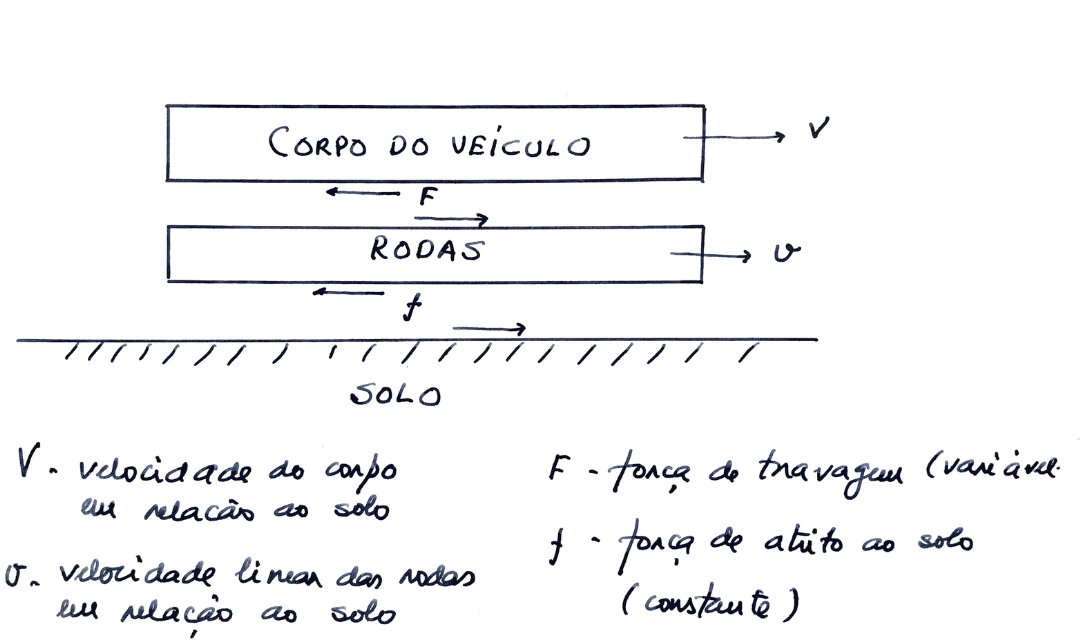 CORPO DO VEÍCULO
V
F
RODAS
v
f
SOLO
V - velocidade do corpo
em relação ao solo
v - velocidade linear das rodas
em relação ao solo
F - força de travagem (variável
f - força de atrito ao solo
(constante)